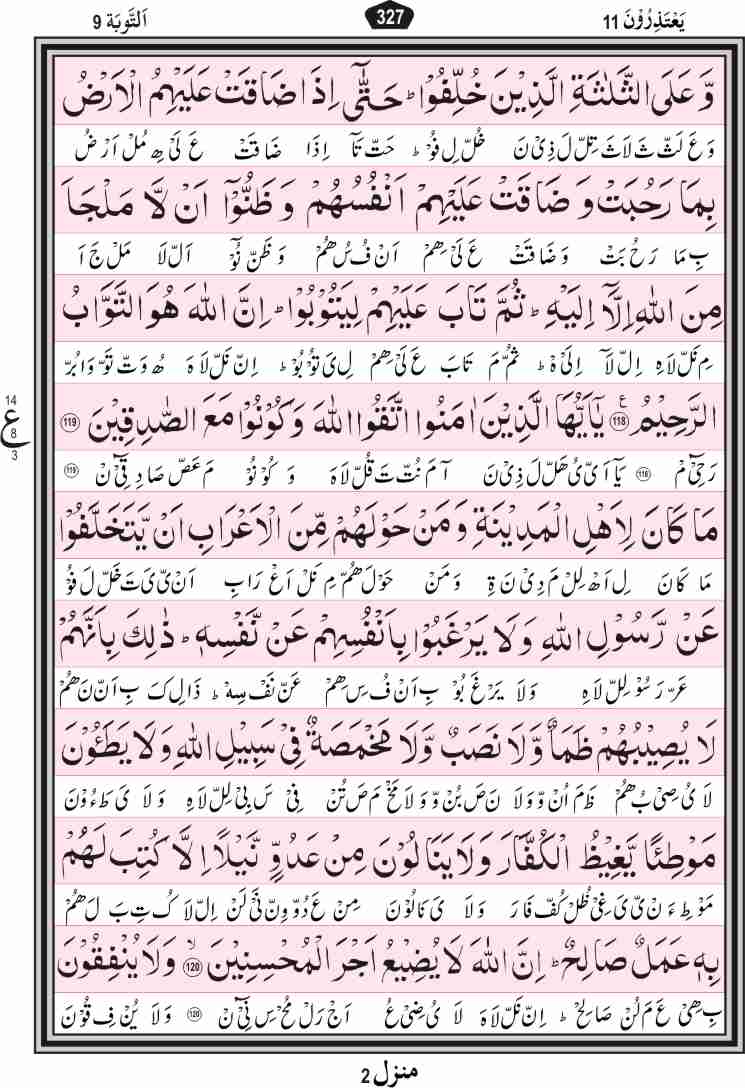 يَعْتَذِرُوْنَ 11
327
اَلتَّوْبَة 9
وَّ عَلَى الثَّلٰثَةِ الَّذِيْنَ خُلِّفُوْا ؕ حَتّٰۤى اِذَا ضَاقَتْ عَلَيْهِمُ الْاَرْضُ
وَ عَ لَثّ ثَ لَا ثَ تِلّ لَ ذِىْ نَ خُلّ لِ فُوْ ؕ حَتّ تَاۤ اِذَا ضَا قَتْ عَ لَىْ هِ مُلْ اَرْ ضُ
بِمَا رَحُبَتْ وَ ضَاقَتْ عَلَيْهِمْ اَنْفُسُهُمْ وَ ظَنُّوْۤا اَنْ لَّا مَلْجَاَ
بِ مَا رَ حُ بَتْ وَ ضَا قَتْ عَ لَىْ هِمْ اَنْ فُ سُ هُمْ وَ ظَنّ نُوْۤ اَلّ لَا مَلْ جَ اَ
مِنَ اللّٰهِ اِلَّاۤ اِلَيْهِ ؕ ثُمَّ تَابَ عَلَيْهِمْ لِيَتُوْبُوْا ؕ اِنَّ اللّٰهَ هُوَ التَّوَّابُ
مِ نَلّ لَاهِ اِلّ لَاۤ اِلَىْ هْ ؕ ثُمّ مَ تَا بَ عَ لَىْ هِمْ لِ ىَ تُوْ بُوْ ؕ اِنّ نَلّ لَا هَ هُ وَتّ تَوّ وَا بُرّ
الرَّحِيْمُ ﴿118﴾ ع يٰۤاَيُّهَا الَّذِيْنَ اٰمَنُوا اتَّقُوا اللّٰهَ وَ كُوْنُوْا مَعَ الصّٰدِقِيْنَ ﴿119﴾
رَ حِىْۤ مْ ﴿118﴾ يَاۤ اَىّ ىُ هَلّ لَ ذِىْ نَ آ مَ نُتّ تَ قُلّ لَا هَ وَ كُوْ نُوْ مَ عَصّ صَا دِ قِىْۤ نْ ﴿119﴾
14
ع
8
3
مَا كَانَ لِاَهْلِ الْمَدِيْنَةِ وَ مَنْ حَوْلَهُمْ مِّنَ الْاَعْرَابِ اَنْ يَّتَخَلَّفُوْا
مَا كَا نَ لِ اَهْ لِلْ مَ دِىْ نَ ةِ وَ مَنْ حَوْ لَ هُمّ مِ نَلْ اَعْ رَا بِ اَنْ ىّ ىَ تَ خَلّ لَ فُوْ
عَنْ رَّسُوْلِ اللّٰهِ وَ لَا يَرْغَبُوْا بِاَنْفُسِهِمْ عَنْ نَّفْسِهٖ ؕ ذٰلِكَ بِاَنَّهُمْ
عَرّ رَ سُوْ لِلّ لَا هِ وَ لَا يَرْ غَ بُوْ بِ اَنْ فُ سِ هِمْ عَنّ نَفْ سِهْ ؕ ذَا لِ كَ بِ اَنّ نَ هُمْ
لَا يُصِيْبُهُمْ ظَمَاٌ وَّ لَا نَصَبٌ وَّ لَا مَخْمَصَةٌ فِىْ سَبِيْلِ اللّٰهِ وَ لَا يَطَـُٔوْنَ
لَا ىُ صِىْ بُ هُمْ ظَ مَ اُنْ وّ وَ لَا نَ صَ بُنْ وّ وَ لَا مَخْ مَ صَ تُنْ فِىْ سَ بِىْ لِلّ لَا هِ وَ لَا ىَ طَ ءُوْ نَ
مَوْطِئًا يَّغِيْظُ الْكُفَّارَ وَ لَا يَنَالُوْنَ مِنْ عَدُوٍّ نَّيْلًا اِلَّا كُتِبَ لَهُمْ
مَوْ طِ ءَ نْ ىّ ىَ غِىْ ظُلْ كُفّ فَا رَ وَ لَا ىَ نَا لُوْ نَ مِنْ عَ دُوّ وِنّ نَىْ لَنْ اِلّ لَا كُ تِ بَ لَ هُمْ
بِهٖ عَمَلٌ صَالِحٌ ؕ اِنَّ اللّٰهَ لَا يُضِيْعُ اَجْرَ الْمُحْسِنِيْنَ ﴿120﴾ ۙ وَ لَا يُنْفِقُوْنَ
بِ هِىْ عَ مَ لُنْ صَا لِحْ ؕ اِنّ نَلّ لَا هَ لَا ىُ ضِىْ عُ اَجْ رَلْ مُحْ سِ نِىْۤ نْ ﴿120﴾ وَ لَا يُنْ فِ قُوْنَ
منزل 2